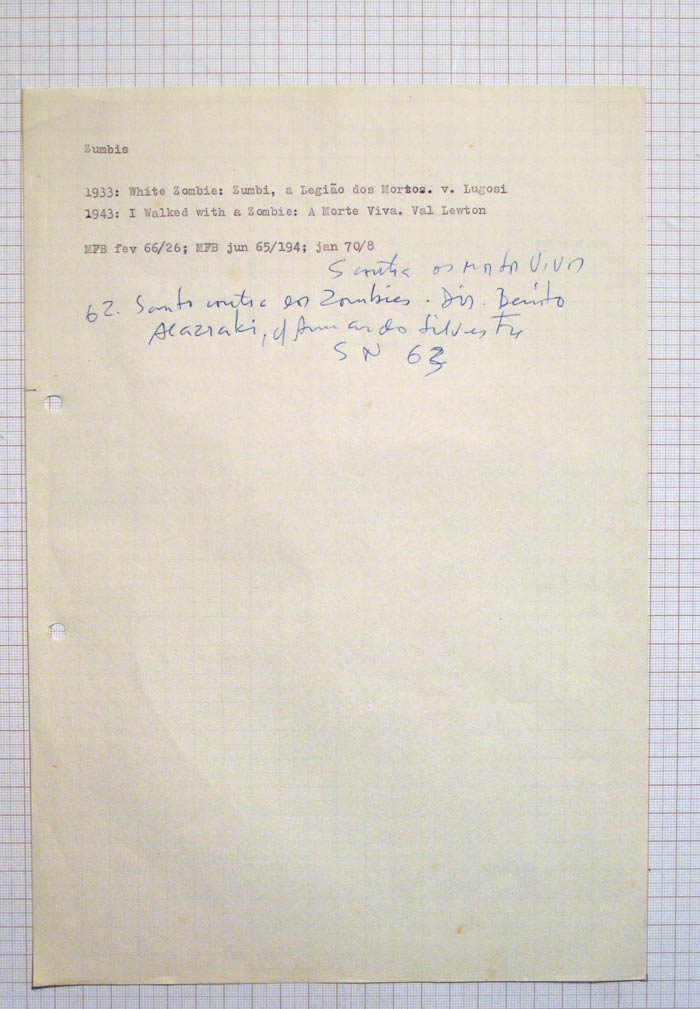 Zumbis
1933: White Zombie: Zumbi, a Legião dos Mortos. v. Lugosi
1943: I Walked with a Zombie: A Morte Viva. Val Lewton
MFB fev 66/26; MFB jun 65/194; jan 70/8
S contra os mortos vivos
62. Santo contra los Zombies. Dir. Benito
Alazraki, c/ Armando Silvestre
S N 63